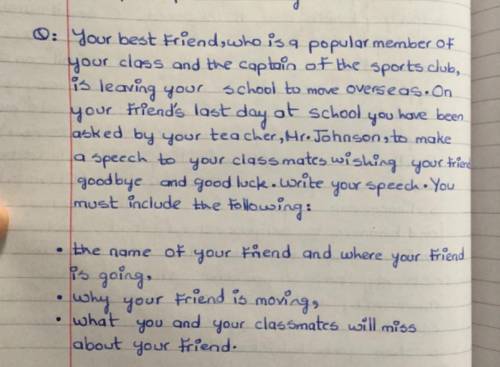 Q: Your best friend, who is a popular member of
your class and the captain of the sports club,
is leaving your school to move overseas. On
your friend's last day at school you have been
asked by your teacher, Mr. Johnson, to make
a speech to your classmates wishing your friend
goodbye and good luck. Write your speech. You
must include the following:
• the name of your friend and where your friend
is going,
• why your friend is moving,
• what you and your classmates will miss
about your friend.